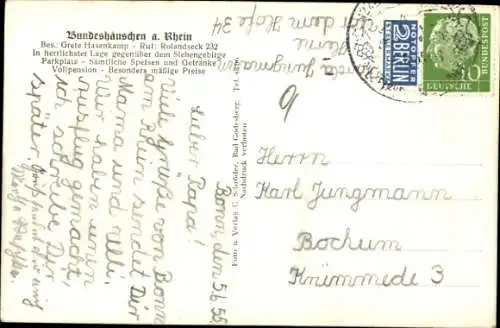 Bundeshäuschen a. Rhein
Bes.: Grete Hasenkamp - Ruf: Rolandseck 232
In herrlichster Lage gegenüber dem Siebengebirge
Parkplatz - Sämtliche Speisen und Getränke
Vollpension - Besonders mäßige Preise
Jungmann
Herne
dem Hofe 34
NOTOPFER
2 BERLIN
STEUERMARKE
DEUTSCHE
BUNDESPOST
10
Foto u. Verlag Schröder, Bad Godesberg,
Nachdruck verboten
9
Bonn, den 5.6.55
Lieber Papa!
Viele Grüße von Bonn
am Rhein sendet Dir
Mama und Nelli.
Wir haben einen
Ausflug gemacht,
ich schreibe Dir
später.
Herrn
Karl Jungmann
Bochum
Krümmede 3